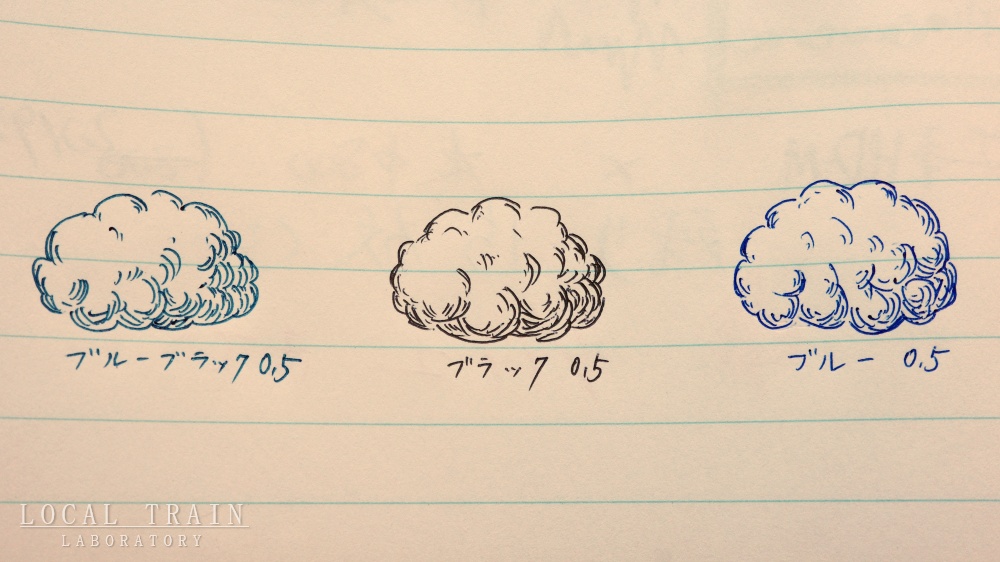 ブルーブラック 0.5
ブラック 0.5
ブルー 0.5
LOCAL TRAIN
LABORATORY